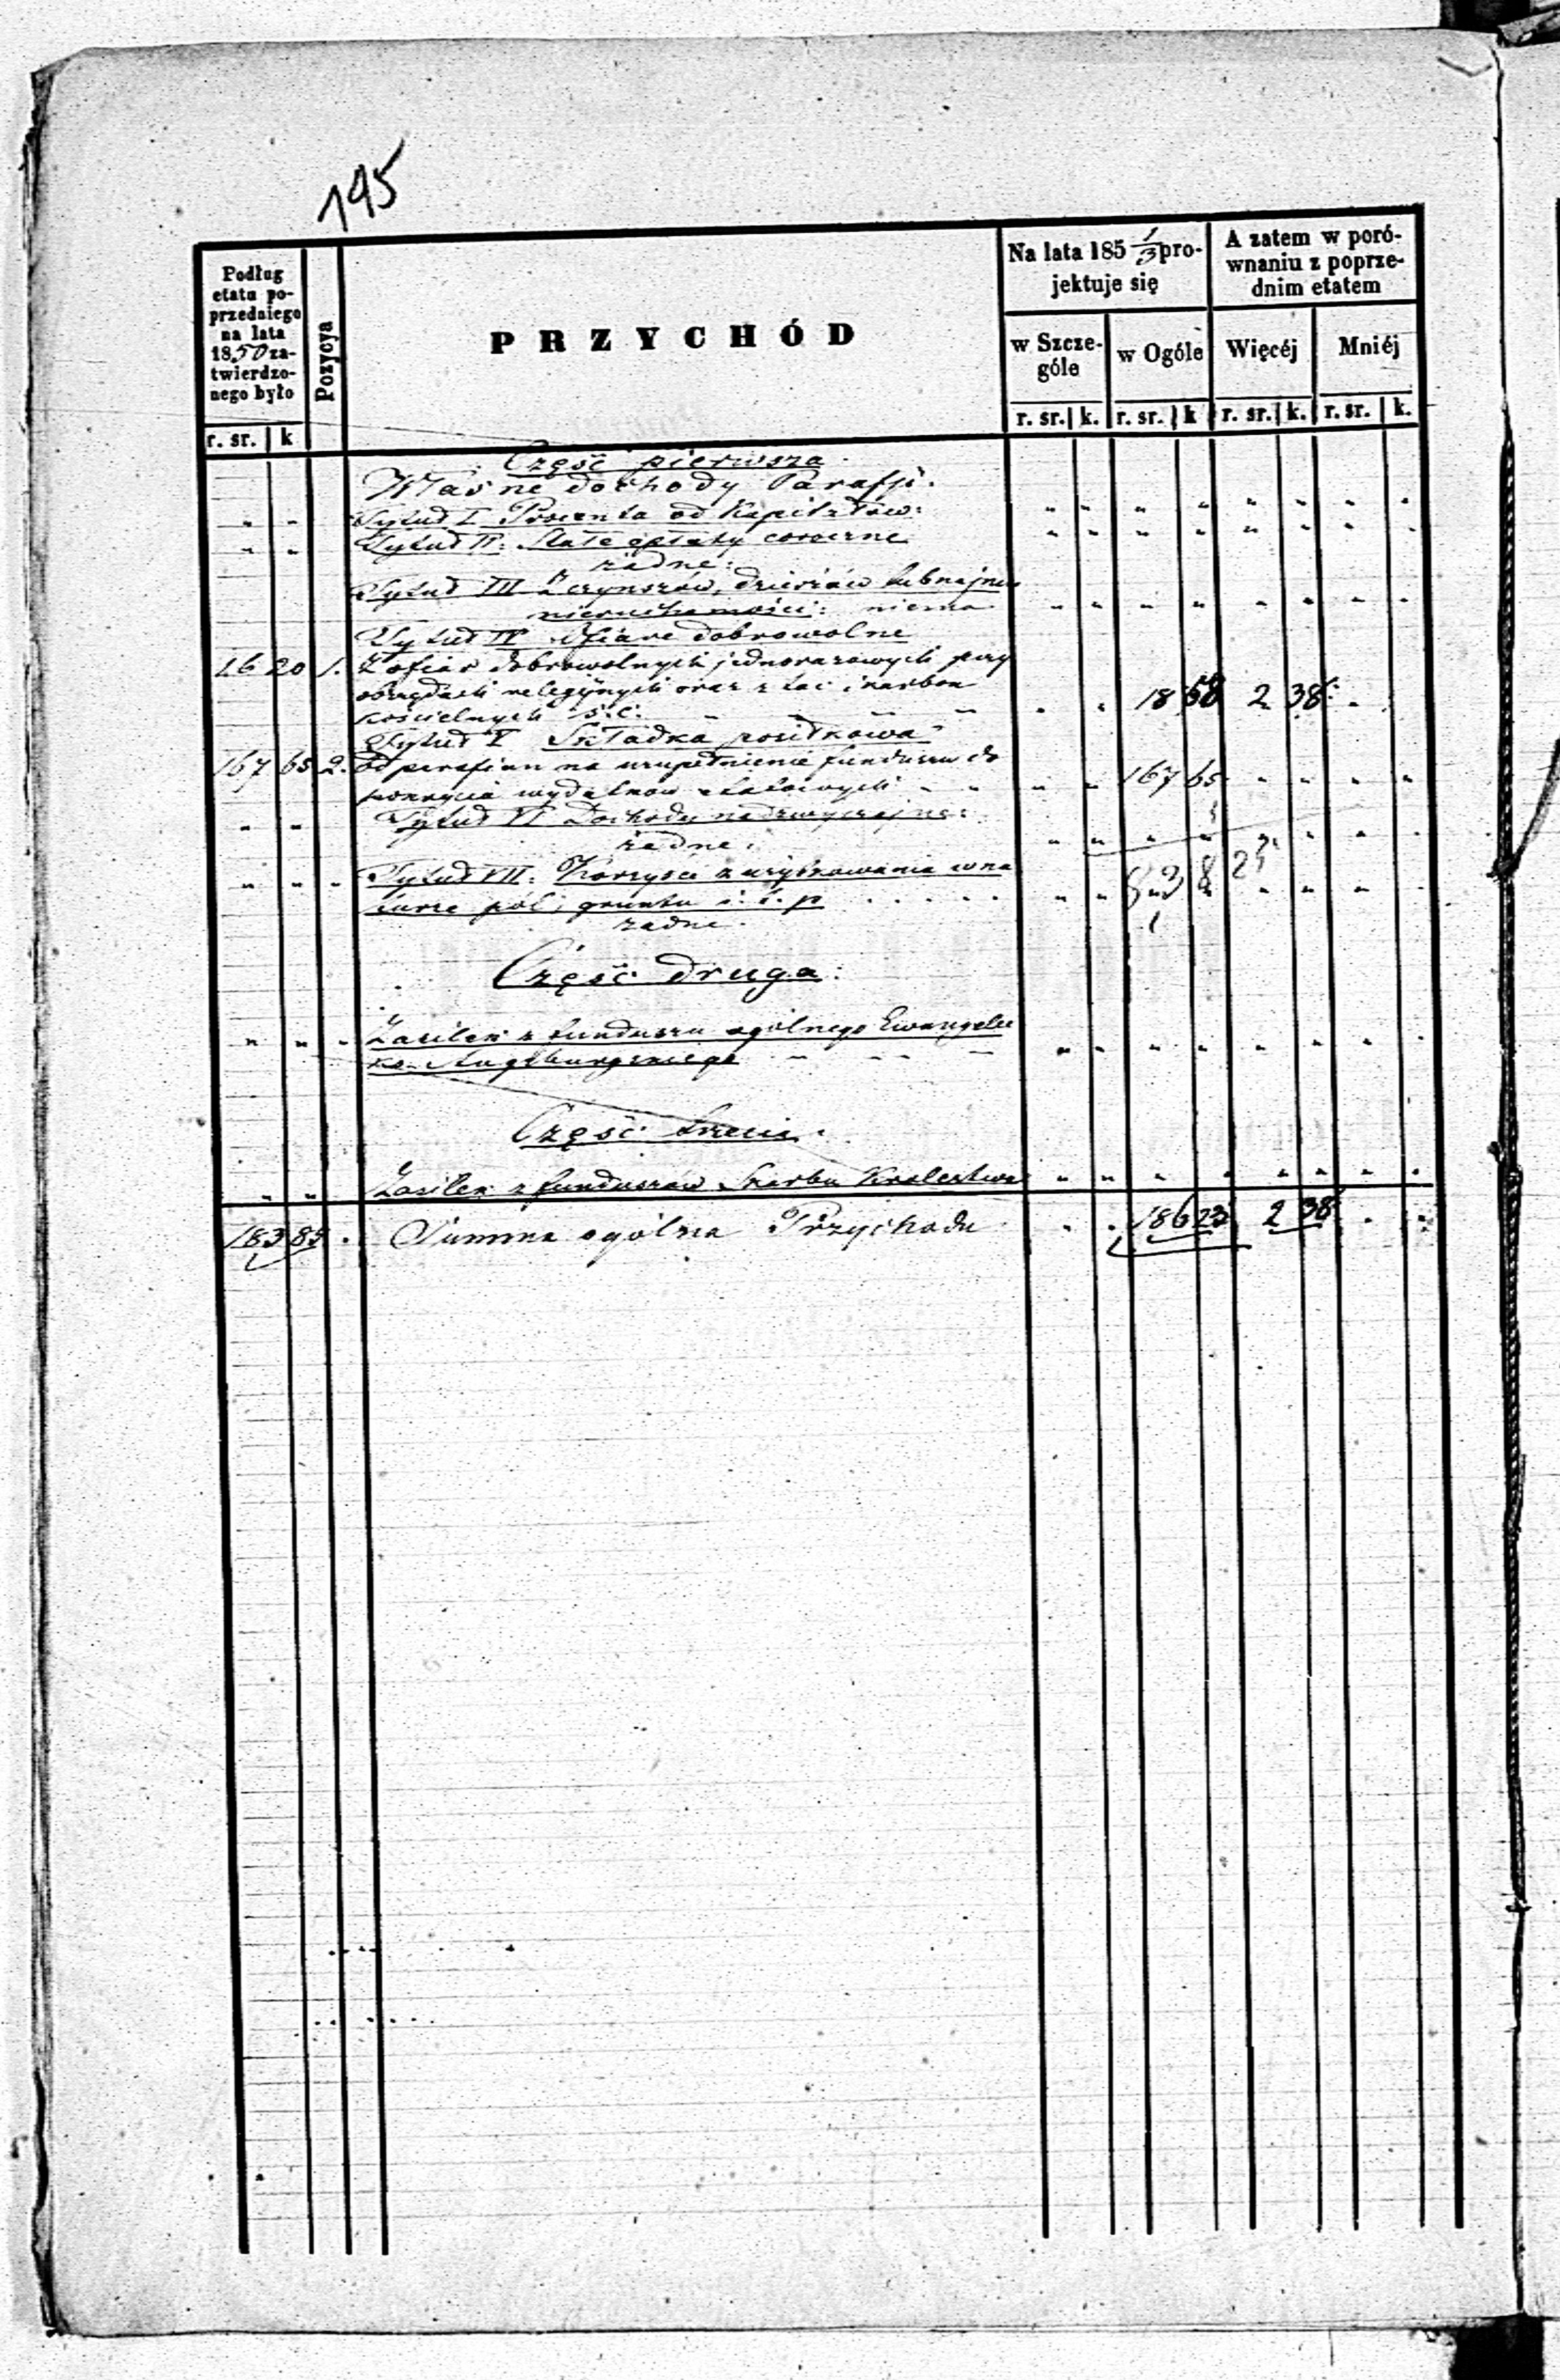 195
Podług
etatu po-
przedniego
na lata
1850 za-
twierdzo-
nego było
r. sr. k
Pozycya
PRZYCHÓD
Na lata 185 1/3 pro-
jektuje się
w Szcze-
góle
r. sr. k.
w Ogóle
r. sr. k
A zatem w poró-
wnaniu z poprze-
dnim etatem
Więcéj
r. sr. k.
Mniéj
r. sr. k.
Część pierwsza
Własne dochody Parafji.
" " Tytuł I Procenta od Kapitałów: " " " " " " " "
" " Tytuł II: Stałe opłaty coroczne " " " " " " " "
żadne:
Tytuł III Z czynszów, dzierżaw lub najmu
nieruchomości: niema " " " " " " " "
Tytuł IV Ofiare dobrowolne
16 20 1. Z ofiar dobrowolnych jednorazowych przy
obrzędach religijnych oraz z tac i karbon
kościelnych " " 18 58 2 38 "
Tytuł V Składka posiłkowa
167 65 2. Od parafian na uzupełnienie funduszu do
pokrycia wydatków etatowych " " 167 65 " " " "
" " Tytuł VI Dochody nadzwyczajne:
żadne: " " " " " " " "
" " " Tytuł VII: Korzyści z użytkowania w na
turze pól, gruntu i. t. p " " " " " " " "
żadne.
Część druga:
" " " Zasiłek z funduszu ogólnego Ewangelic
ko-Augsburgskiego " " " " " " " "
Część trzecia.
" " Zasiłek z funduszów Skarbu Królestwa " " " " " " " "
183 85 Summa ogólna Przychodu " " 186 23 2 38 " "